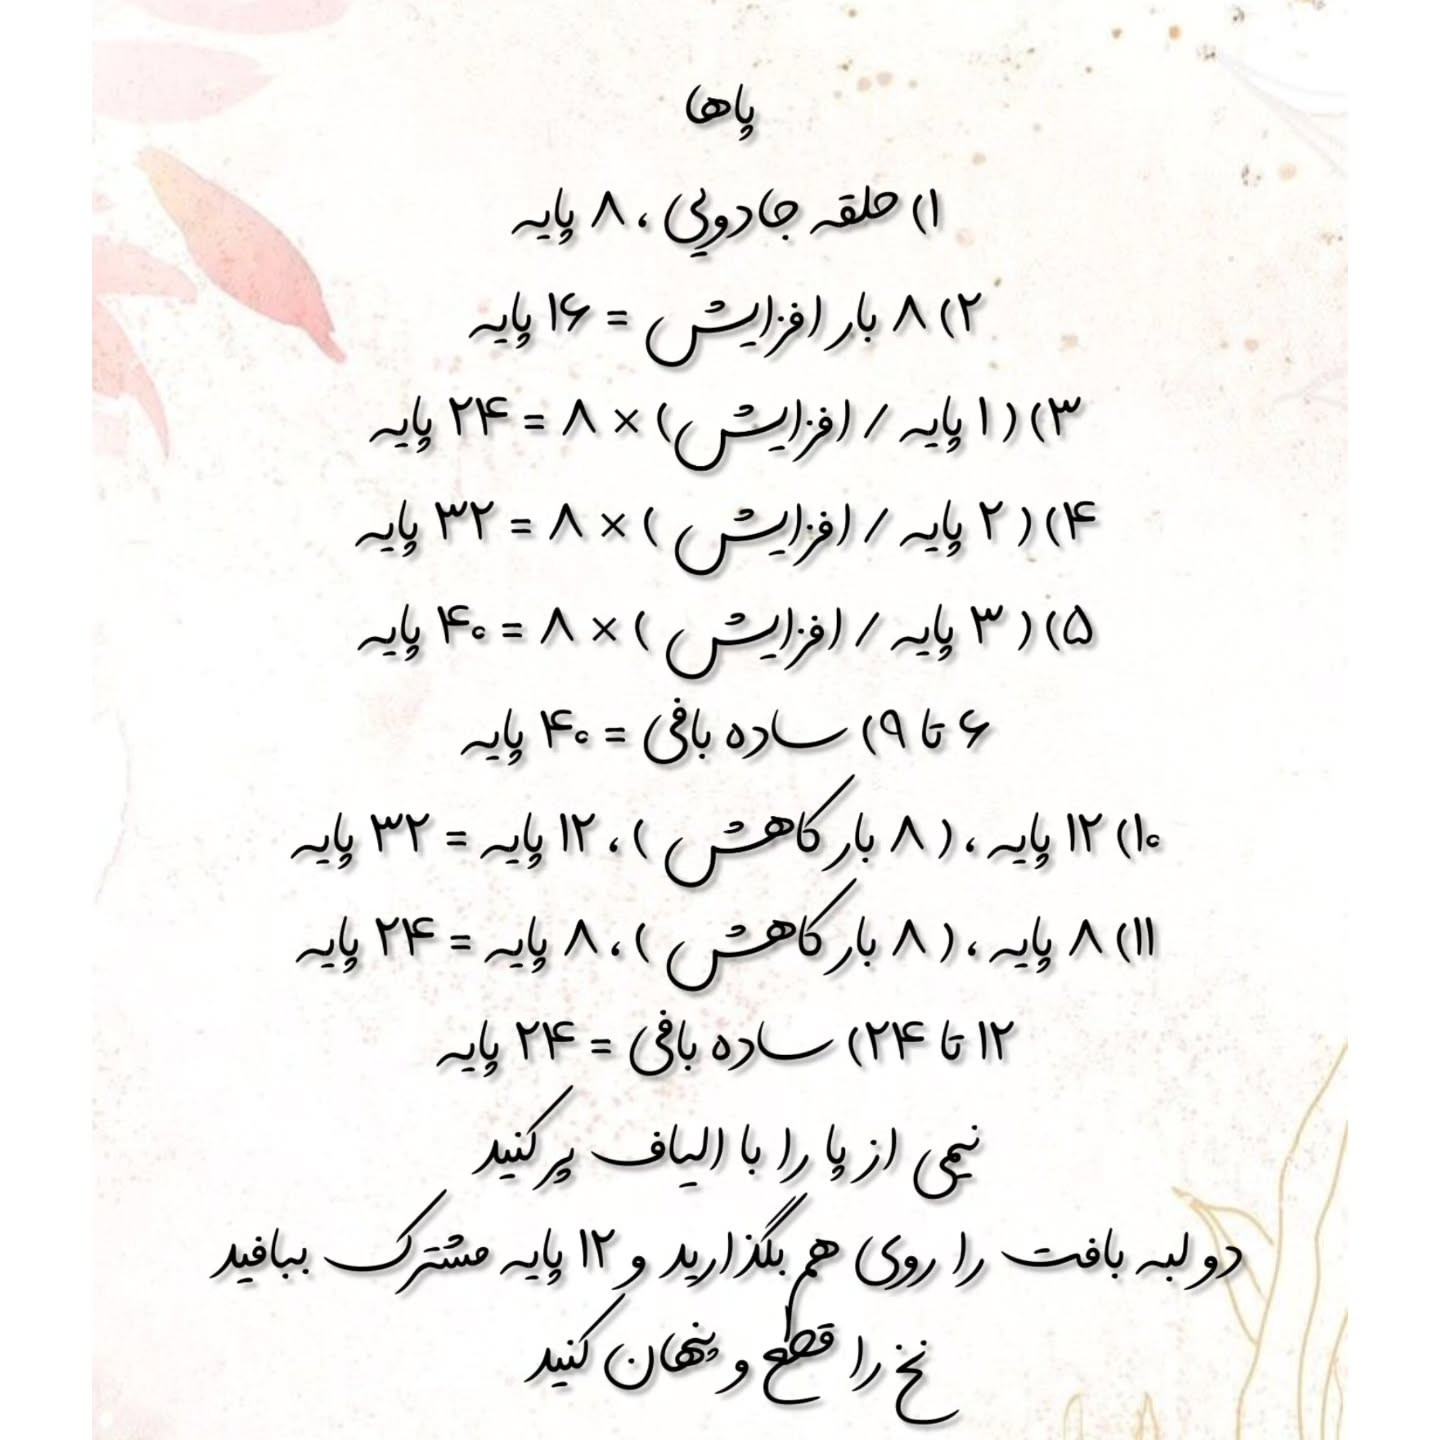 پاها
۱) حلقه جادویی ، ۸ پایه
۲) ۸ بار افزایش = ۱۶ پایه
۳) ( ۱ پایه / افزایش ) × ۸ = ۲۴ پایه
۴) ( ۲ پایه / افزایش ) × ۸ = ۳۲ پایه
۵) ( ۳ پایه / افزایش ) × ۸ = ۴۰ پایه
۶ تا ۹) ساده بافی = ۴۰ پایه
۱۰) ۱۲ پایه ، ( ۸ بار کاهش ) ، ۱۲ پایه = ۳۲ پایه
۱۱) ۸ پایه ، ( ۸ بار کاهش ) ، ۸ پایه = ۲۴ پایه
۱۲ تا ۲۴) ساده بافی = ۲۴ پایه
نیمی از پا را با الیاف پر کنید
دو لبه بافت را روی هم بگذارید و ۱۲ پایه مشترک ببافید
نخ را قطع و پنهان کنید